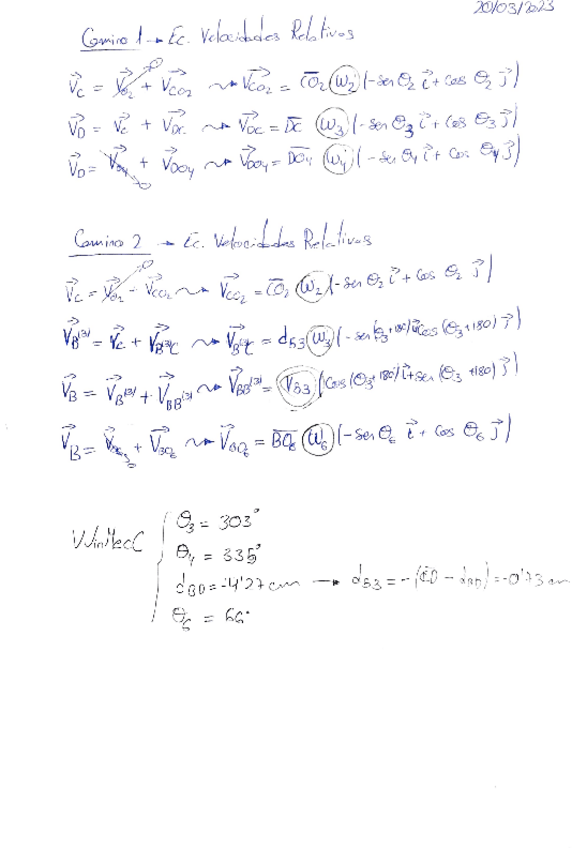 20/03/2023
Camino 1 → Ec. Velocidades Relativas
V⃗c = V⃗o₂ + V⃗co₂ ⇝ V⃗co₂ = C̅O̅₂ ω₂ (-sen θ₂ i⃗ + cos θ₂ j⃗)
V⃗D = V⃗c + V⃗Dc ⇝ V⃗DC = D̅C̅ ω₃ (-sen θ₃ i⃗ + cos θ₃ j⃗)
V⃗D = V⃗o₄ + V⃗DO₄ ⇝ V⃗DO₄ = D̅O̅₄ ω₄ (-sen θ₄ i⃗ + cos θ₄ j⃗)
Camino 2 → Ec. Velocidades Relativas
V⃗c = V⃗o₂ - V⃗co₂ ⇝ V⃗co₂ = C̅O̅₂ ω₂ (-sen θ₂ i⃗ + cos θ₂ j⃗)
V⃗B⁽³⁾ = V⃗c + V⃗B⁽³⁾C ⇝ V⃗B⁽³⁾C = dB3 ω₃ (-sen(θ₃+180) i⃗ cos(θ₃+180) j⃗)
V⃗B = V⃗B⁽³⁾ + V⃗BB⁽³⁾ ⇝ V⃗BB⁽³⁾ = VB3 (cos(θ₃+180) i⃗ + sen(θ₃+180) j⃗)
V⃗B = V⃗o₆ + V⃗BO₆ ⇝ V⃗BO₆ = B̅O̅₆ ω₆ (-sen θ₆ i⃗ + cos θ₆ j⃗)
WinMecC
θ₃ = 303°
θ₄ = 335°
dBD = -4'27 cm → dB3 = -(CD - dBD) = -0'73 cm
θ₆ = 66°